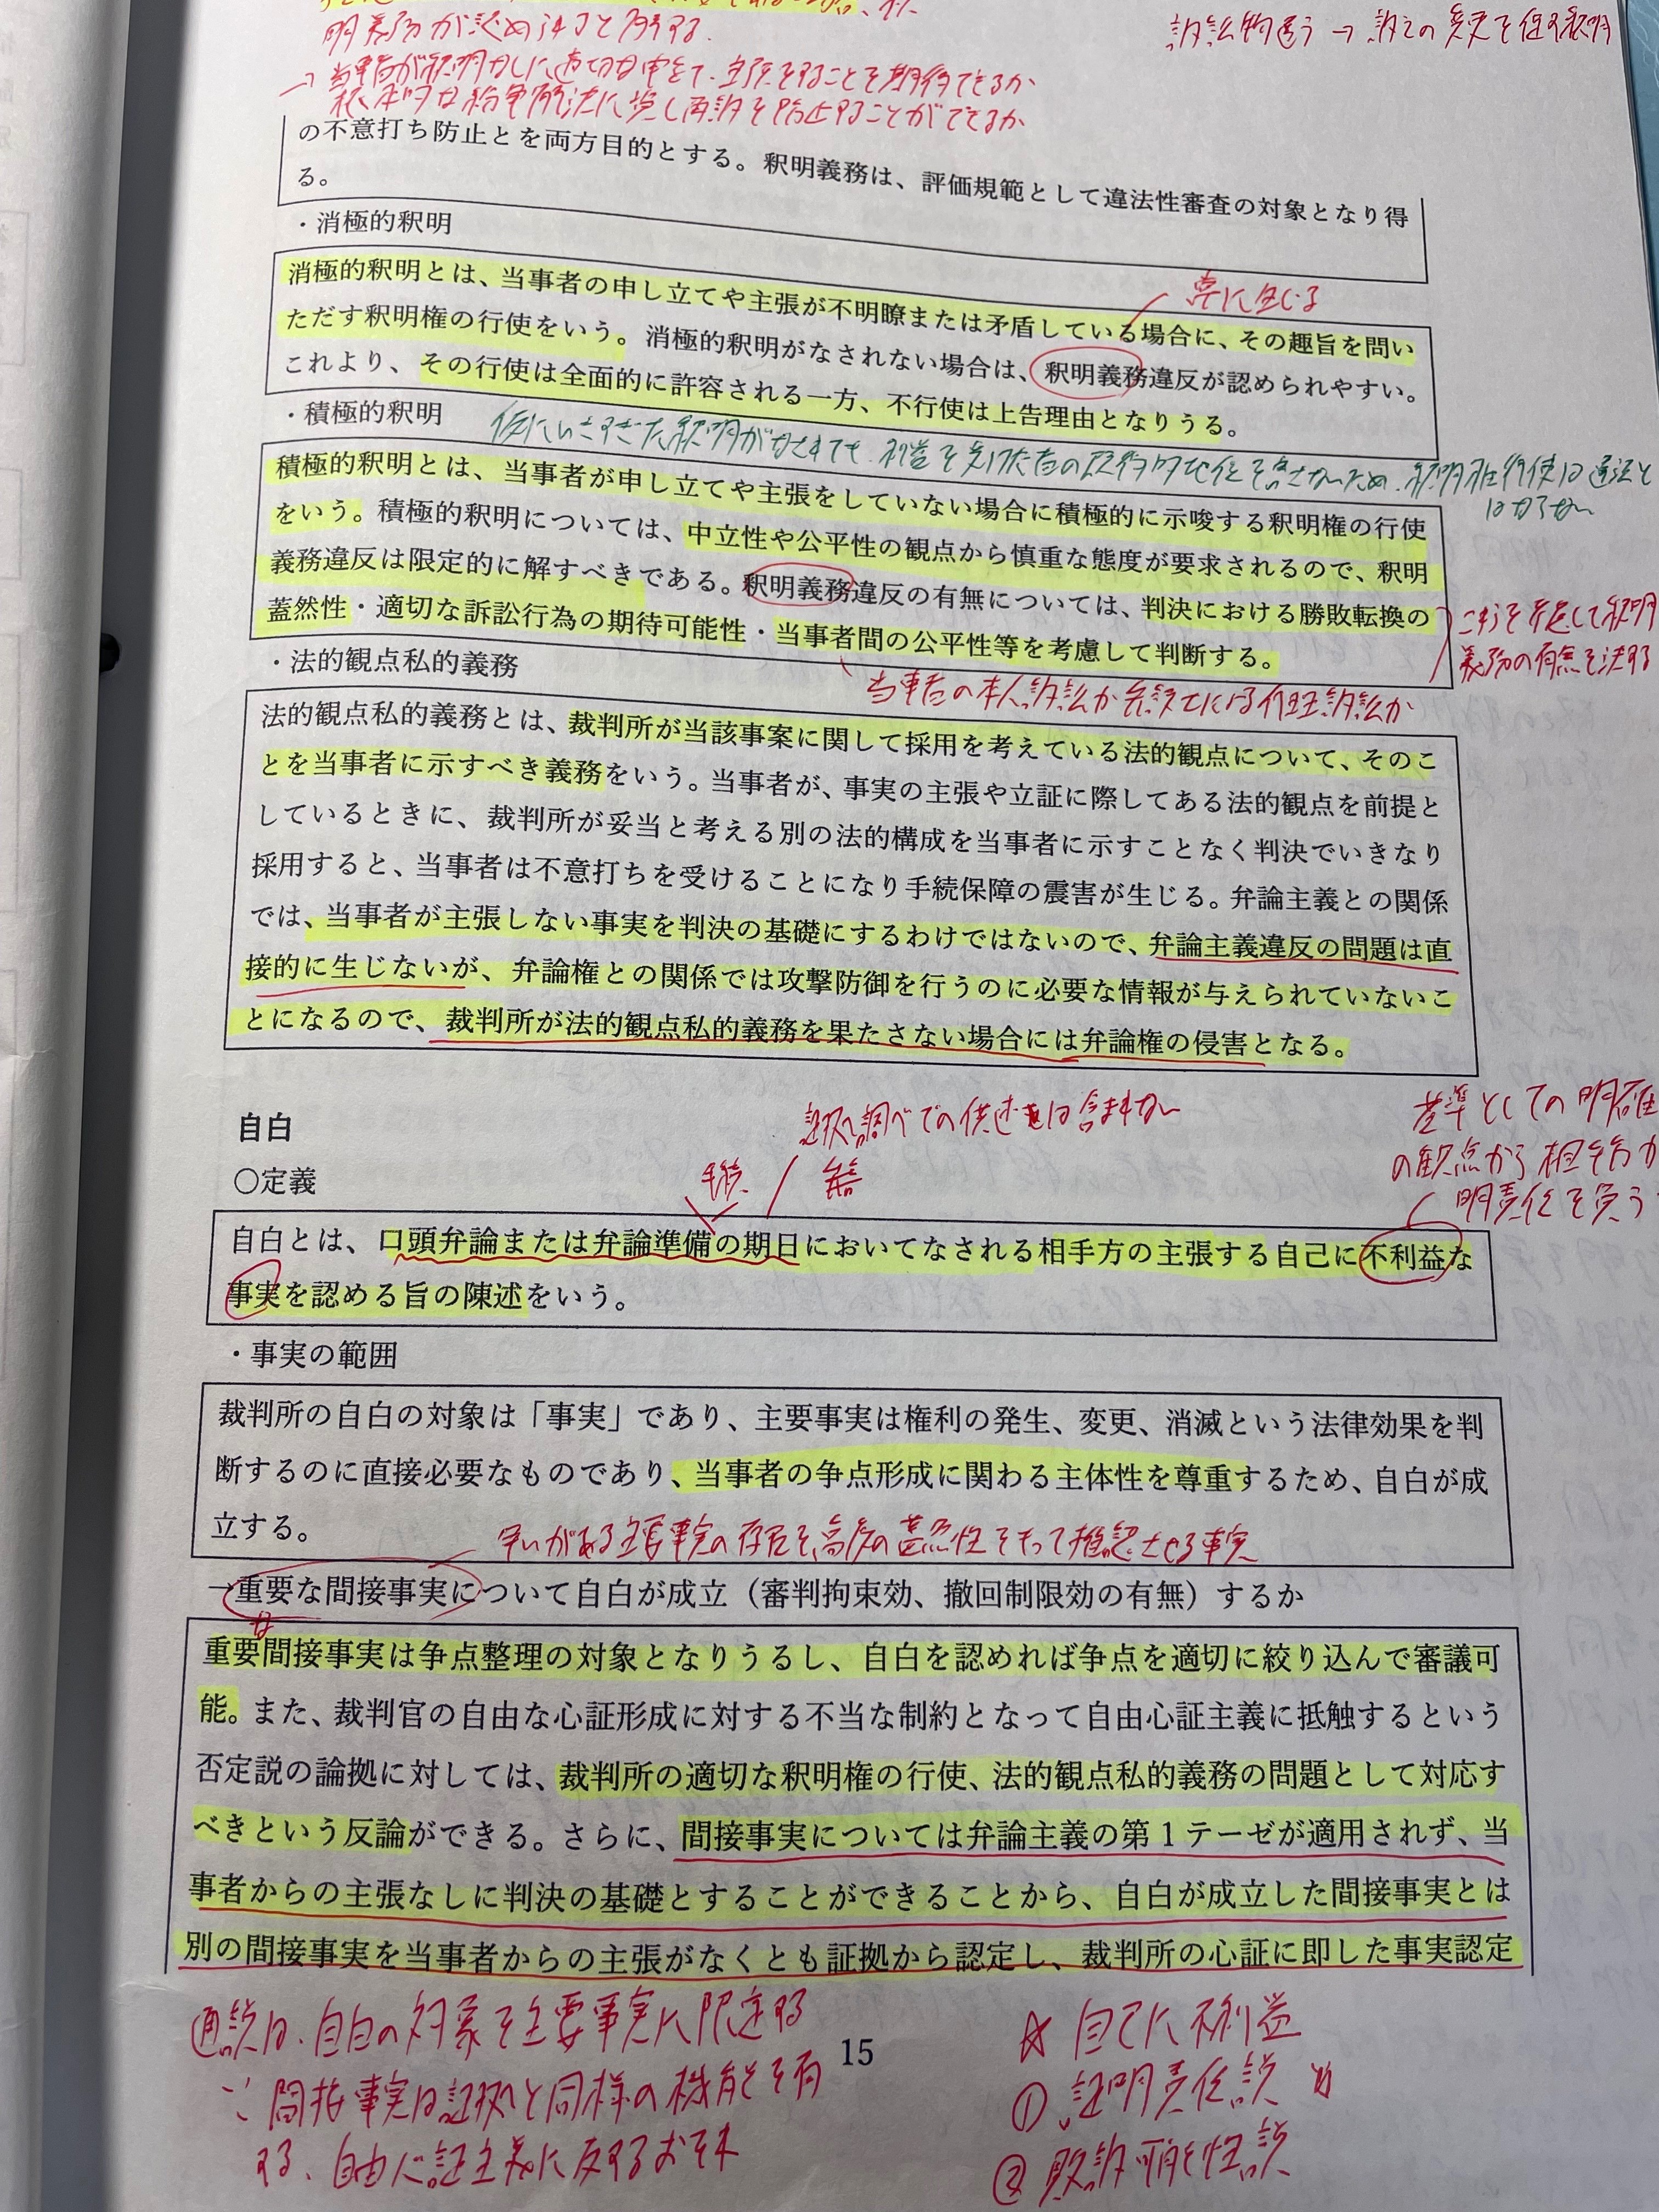 明義務が認め
訴訟物違う→訴えの変更を促す釈明
→当事者が釈明なしに適切な申立て、主張をすることを期待できるか
根本的な紛争解決に資し再訴を防止することができるか
の不意打ち防止とを両方目的とする。釈明義務は、評価規範として違法性審査の対象となり得
る。
・消極的釈明
消極的釈明とは、当事者の申し立てや主張が不明瞭または矛盾している場合に、その趣旨を問い
ただす釈明権の行使をいう。消極的釈明がなされない場合は、釈明義務違反が認められやすい。
これより、その行使は全面的に許容される一方、不行使は上告理由となりうる。
・積極的釈明
仮にいきすぎた釈明がなされても、利益を受けた者の
釈明権行使は違法と
はならない
積極的釈明とは、当事者が申し立てや主張をしていない場合に積極的に示唆する釈明権の行使
をいう。積極的釈明については、中立性や公平性の観点から慎重な態度が要求されるので、釈明
義務違反は限定的に解すべきである。釈明義務違反の有無については、判決における勝敗転換の
蓋然性・適切な訴訟行為の期待可能性・当事者間の公平性等を考慮して判断する。
して釈明
義務の有無を決する
・法的観点私的義務
当事者の本人訴訟か弁護士による代理訴訟か
法的観点私的義務とは、裁判所が当該事案に関して採用を考えている法的観点について、そのこ
とを当事者に示すべき義務をいう。当事者が、事実の主張や立証に際してある法的観点を前提と
しているときに、裁判所が妥当と考える別の法的構成を当事者に示すことなく判決でいきなり
採用すると、当事者は不意打ちを受けることになり手続保障の震害が生じる。弁論主義との関係
では、当事者が主張しない事実を判決の基礎にするわけではないので、弁論主義違反の問題は直
接的に生じないが、弁論権との関係では攻撃防御を行うのに必要な情報が与えられていないこ
とになるので、裁判所が法的観点私的義務を果たさない場合には弁論権の侵害となる。
自白
証拠調べでの供述は含まれない
基準としての明確
の観点から相手方が
明責任を負う
○定義
自白とは、口頭弁論または弁論準備の期日においてなされる相手方の主張する自己に不利益な
事実を認める旨の陳述をいう。
・事実の範囲
裁判所の自白の対象は「事実」であり、主要事実は権利の発生、変更、消滅という法律効果を判
断するのに直接必要なものであり、当事者の争点形成に関わる主体性を尊重するため、自白が成
立する。
争いがある主要事実の存否を高度の蓋然性をもって推認させる事実
→重要な間接事実について自白が成立（審判拘束効、撤回制限効の有無）するか
な
重要間接事実は争点整理の対象となりうるし、自白を認めれば争点を適切に絞り込んで審議可
能。また、裁判官の自由な心証形成に対する不当な制約となって自由心証主義に抵触するという
否定説の論拠に対しては、裁判所の適切な釈明権の行使、法的観点私的義務の問題として対応す
べきという反論ができる。さらに、間接事実については弁論主義の第１テーゼが適用されず、当
事者からの主張なしに判決の基礎とすることができることから、自白が成立した間接事実とは
別の間接事実を当事者からの主張がなくとも証拠から認定し、裁判所の心証に即した事実認定
通説は、自白の対象を主要事実に限定する
∵間接事実は証拠と同様の機能を有
する、自由心証主義に反するおそれ
15
☆自己に不利益
①証明責任説
②敗訴可能性説